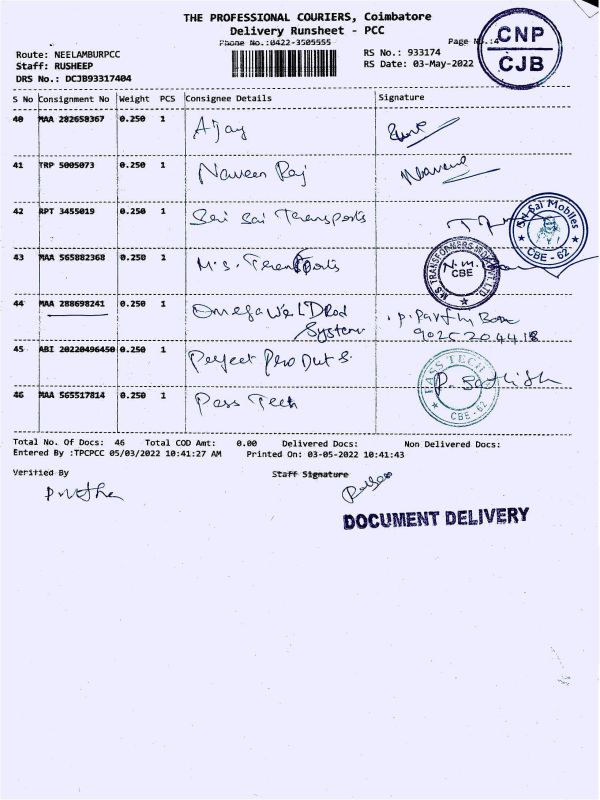 THE PROFESSIONAL COURIERS, Coimbatore
Delivery Runsheet - PCC
Phone No.:0422-3505555
Page No.:4
Route: NEELAMBURPCC
RS No.: 933174
Staff: RUSHEEP
RS Date: 03-May-2022
DRS No.: DCJB93317404
CNP
CJB
S No Consignment No Weight PCS Consignee Details Signature
40 MAA 282658367 0.250 1 Ajay
41 TRP 5005073 0.250 1 Naveen Raj
42 RPT 3455019 0.250 1 Sri Sai Transports
Sri Sai Mobiles
CBE - 62
43 MAA 565882368 0.250 1 M.S.
M S TRANSFORMERS
CBE
44 MAA 288698241 0.250 1 Omega WeLD Rod
System
90252 04418
45 ABI 20220496450 0.250 1 Perfect Pro Dut S.
46 MAA 565517814 0.250 1 Pass Tech
PASS TECH
CBE-62
P. Sathish
Total No. Of Docs: 46 Total COD Amt: 0.00 Delivered Docs: Non Delivered Docs:
Entered By :TPCPCC 05/03/2022 10:41:27 AM Printed On: 03-05-2022 10:41:43
Verified By Staff Signature
DOCUMENT DELIVERY